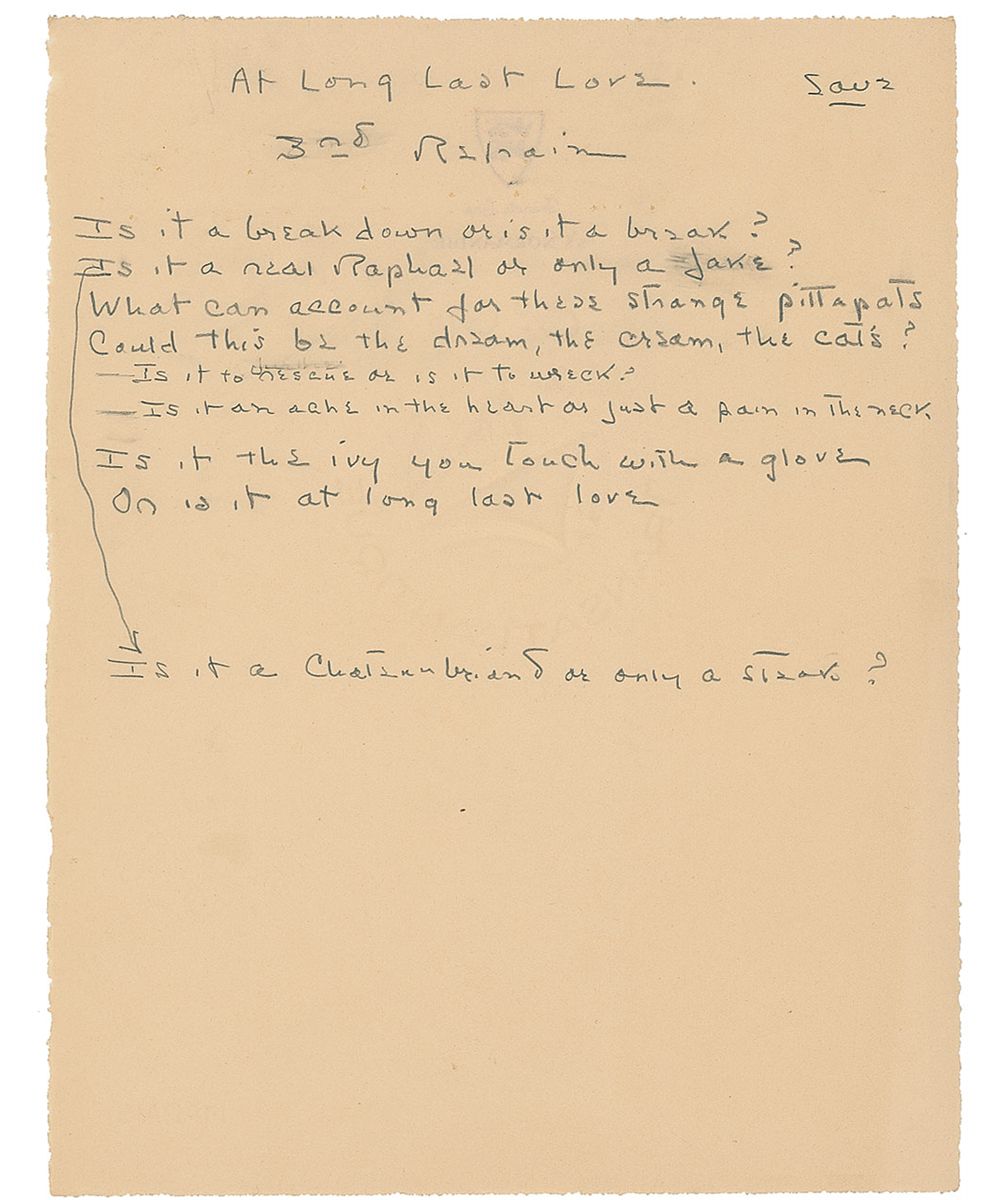 At Long Last Love. Save
3rd Refrain
Is it a break down or is it a break?
Is it a real Raphael or only a fake?
What can account for these strange pittapats
Could this be the dream, the cream, the cat's?
—Is it to rescue or is it to wreck?
—Is it an ache in the heart or just a pain in the neck,
Is it the ivy you touch with a glove
Or is it at long last love
Is it a Chateaubriand or only a steak?